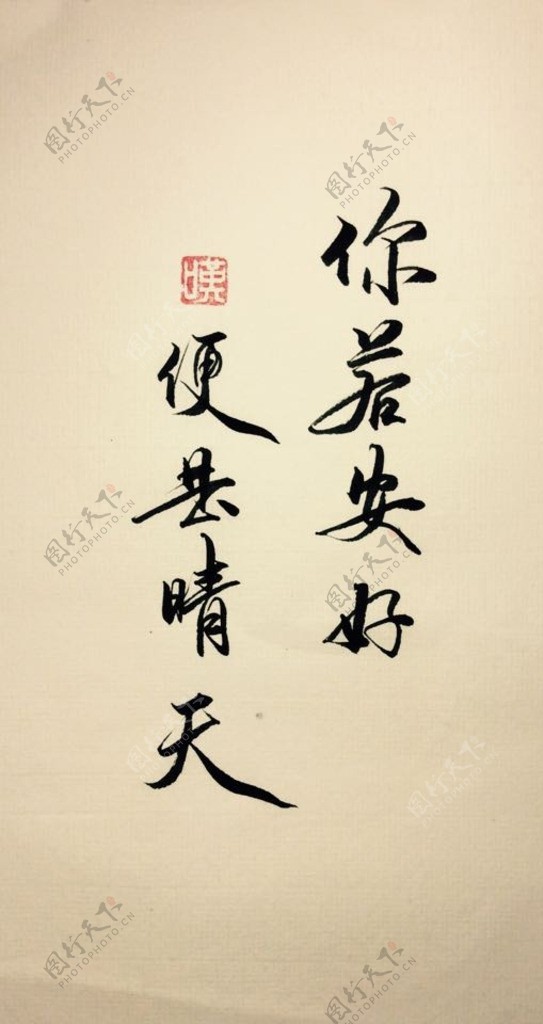 图行天下
PHOTOPHOTO.CN
图行天下
PHOTOPHOTO.CN
你若安好
便是晴天
图行天下
PHOTOPHOTO.CN
图行天下
PHOTOPHOTO.CN
图行天下
PHOTOPHOTO.CN
图行天下
PHOTOPHOTO.CN